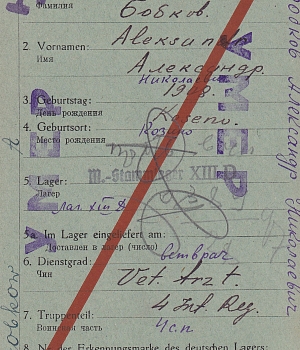 Фамилия
Бобков.
2. Vornamen:
Имя
Александр.
Николаевич
3. Geburtstag:
День рождения
4. Geburtsort:
Место рождения
Козино
M.-Stammlager XIII D
5. Lager:
Лагер
Лаг. XIII D
5a. Im Lager eingeliefert am:
Доставлен в лагер (число)
6. Dienstgrad:
Чин
ветврач
Vet. Arzt.
4 Inf. Reg.
7. Truppenteil:
Воинская часть
4 с.п.
8. No der Erkennungsmarke des deutschen Lagers:
УМЕР
УМЕР
Бобков Александр Николаевич